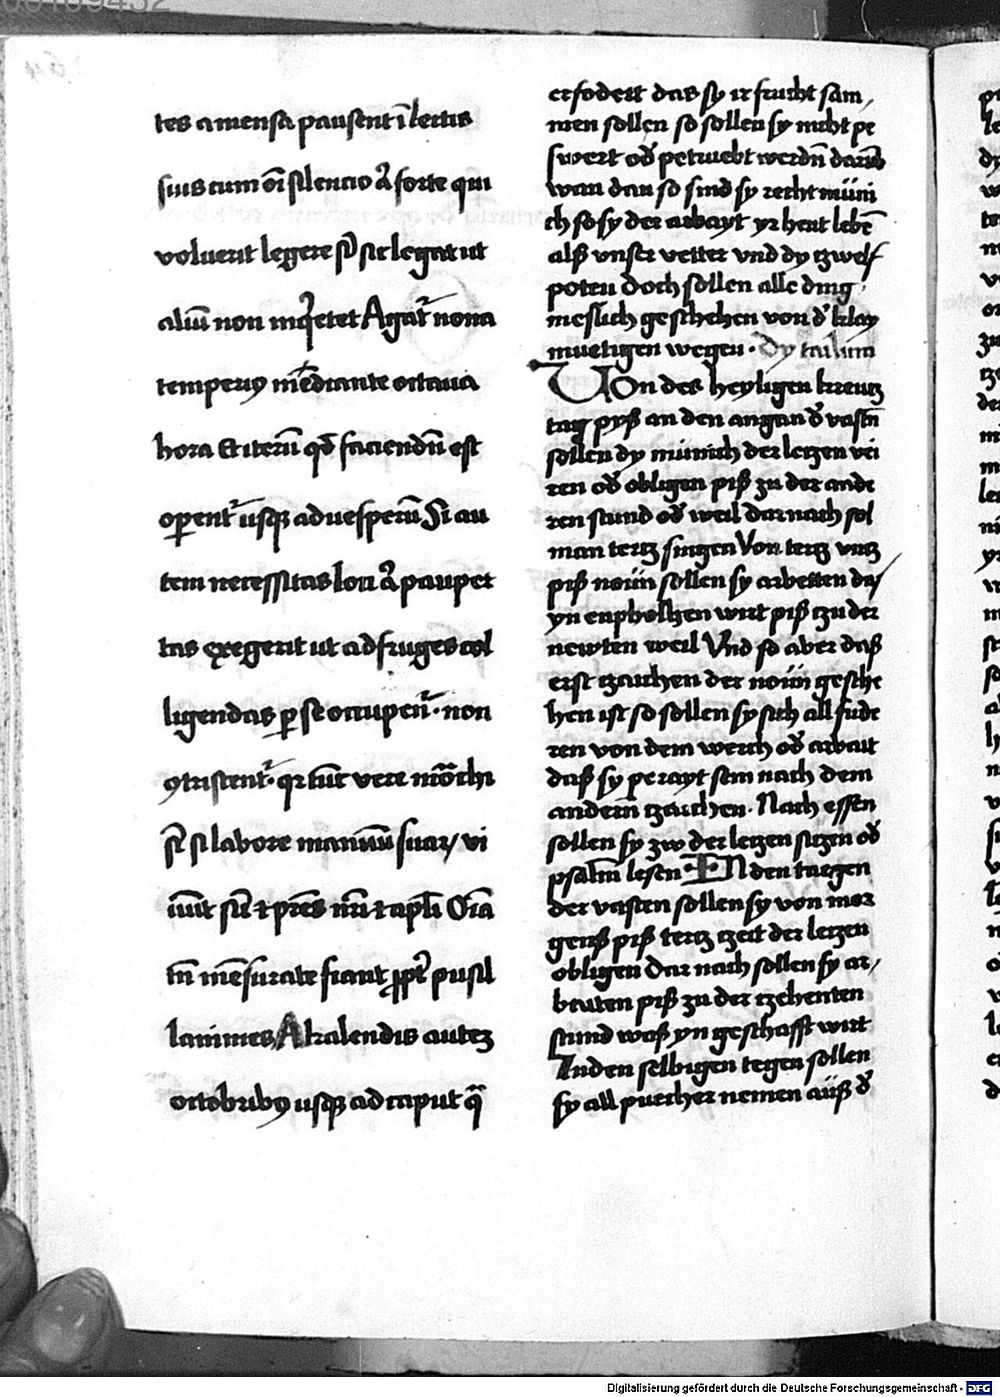 tes a mensa pausent ī lectis
suis cum oī silencio ā forte qui
voluerit legere sͥ sic legat ut
aliū non inqͥetet Agatᷣ nona
temperiꝰ mēdiante octaua
hora Et iterū qd̄ faciendū est
oꝑentᷣ usqꝫ ad uesperū Si au
tem necessitas loci ā pauper
tas exegerit ut ad fruges col
ligendas ꝑ se occupentᷣ · non
ꝯtristentᷣ · qr tūc vere mōchi
sūt si labore manuū suaꝝ vi
uūt sic̄ ⁊ pr̄es nr̄i ⁊ apl̄i Oīa
tn̄ mēsurate fiant ꝓpt̄ pusil
lanimes A kalendis autez
octobribꝰ usqꝫ ad caput qᷓ
erfodert das sy ir frucht sam
men sollen so sollen sy nicht pe
swert od̄ petruebt werdn̄ darūb
wan dan so sind sy recht müni
ch so sy der arbayt yr hent lebē
alß vnser vetter vnd dy tzwelf
poten Doch sollen alle ding
meslich geschehen von d̄ klay
muetigen wegen · dy tailun
Von des heyligen kreutz
tag pyß an den angan d̄ vastn̄
sollen dy münich der letzen vei
ren od̄ obligen piß zu der ande
ren stund od̄ weil darnach sol
man tertz singen Von tertz vntz
piß noün sollen sy arbetten daſ
yn enpholhen wirt piß tzu der
newten weil Vnd so aber daß
erst tzaichen der noün gesche
hen ist so sollen sy sich all sude
ren von dem werch od̄ arbait
daß sy perayt sein nach dem
andern̄ tzaichen · Nach essen
sollen sy zw der letzen sitzen od̄
psalm̄ lesen · IN den taegen
der vasten sollen sy von mor
genß piß tertz tzeit der letzen
obligen Dar nach sollen sy ar
beaten piß zu der tzehenten
stund waß yn geschafft wirt
In den selbigen tegen sollen
sy all puecher nemen auß d̄
Digitalisierung gefördert durch die Deutsche Forschungsgemeinschaft - DFG